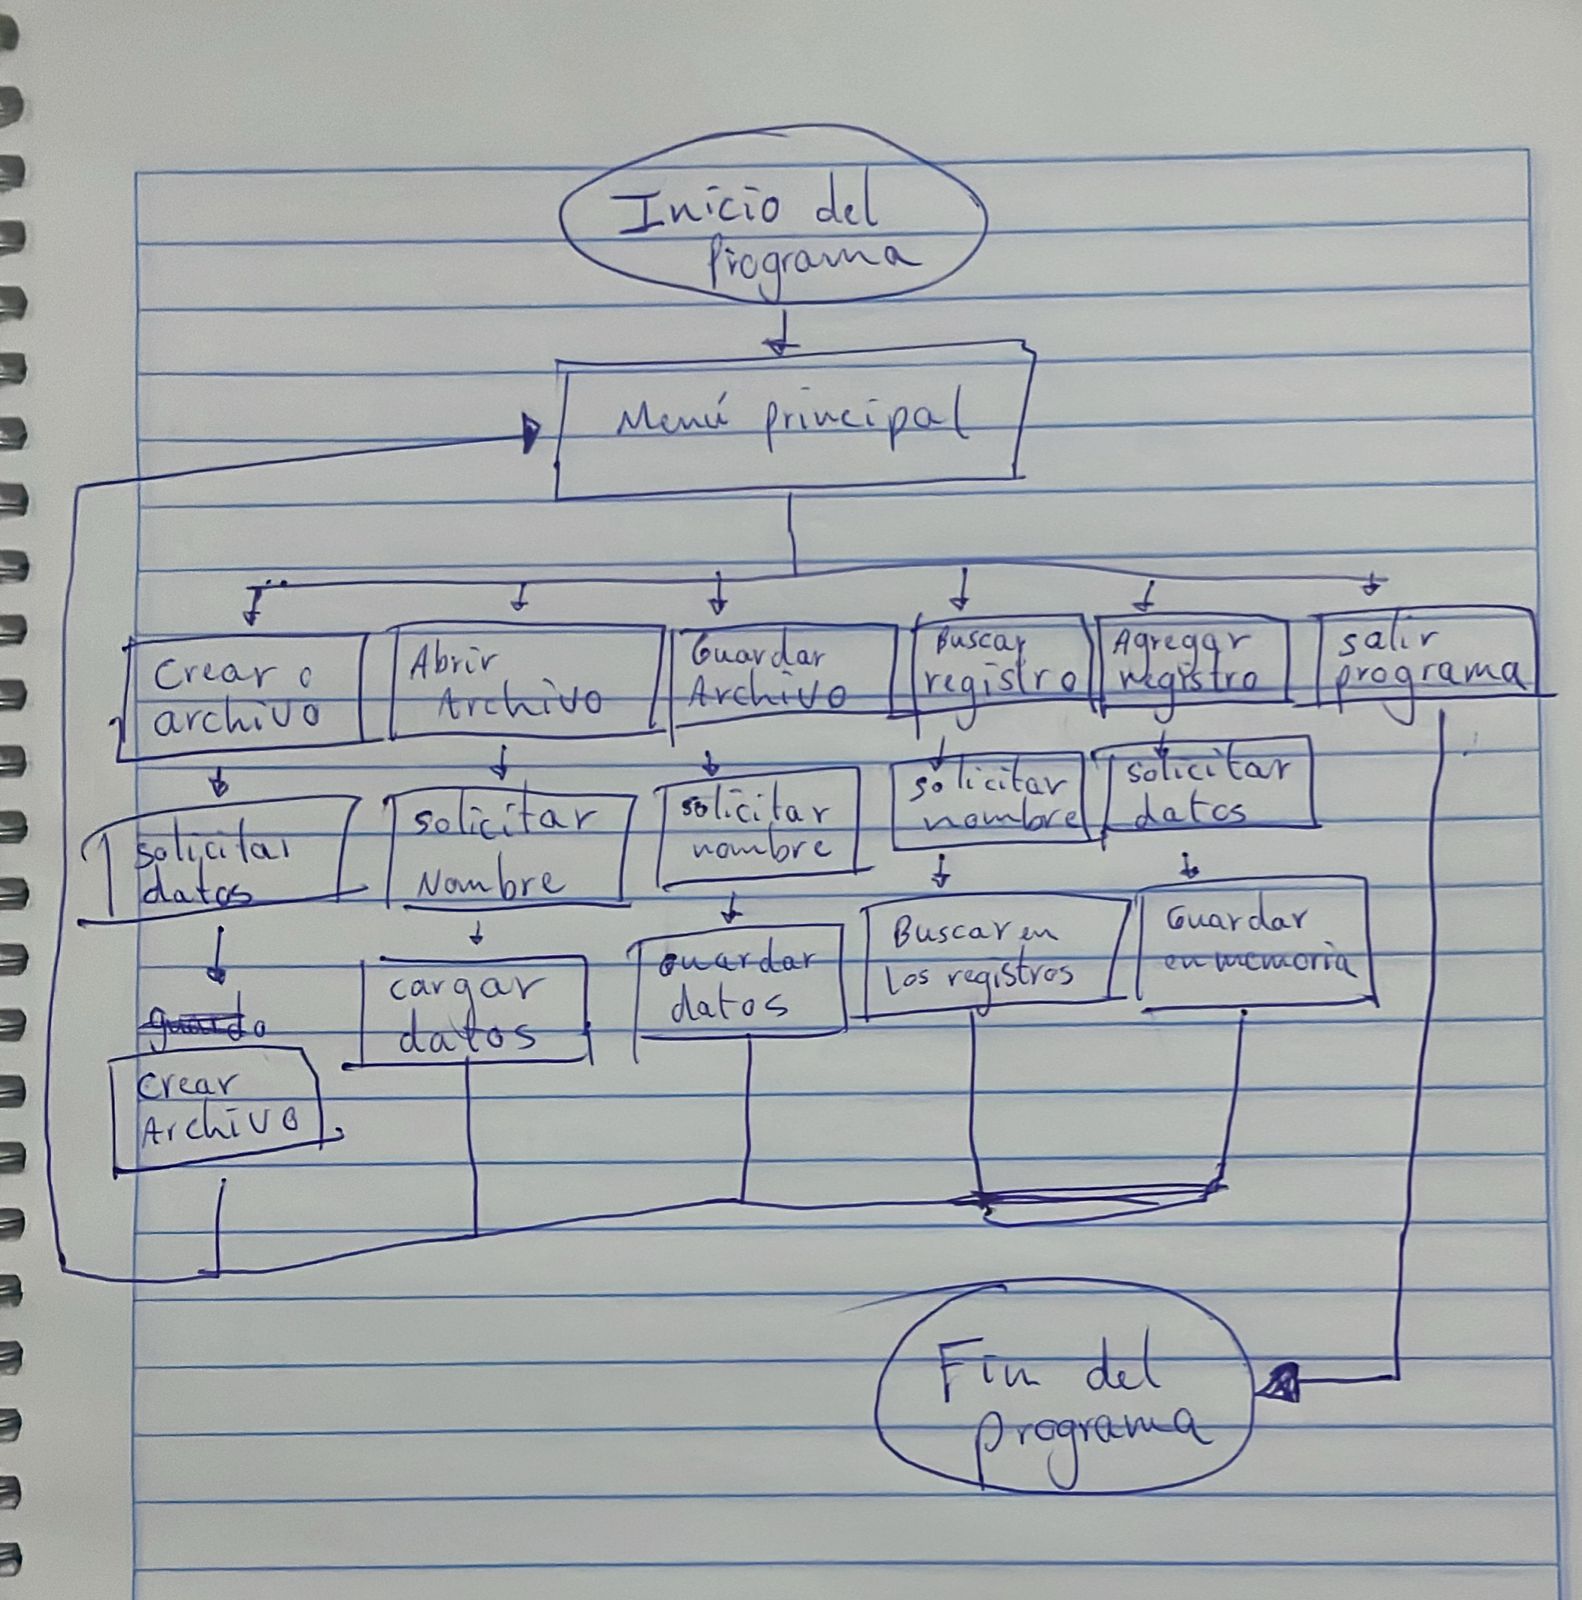 Inicio del
Programa
Menú principal
Crear o
archivo
Abrir
Archivo
Guardar
Archivo
Buscar
registro
Agregar
registro
salir
programa
solicitar
datos
solicitar
Nombre
solicitar
nombre
solicitar
nombre
solicitar
datos
guardo
crear
Archivo
cargar
datos
guardar
datos
Buscar en
los registros
Guardar
en memoria
Fin del
programa